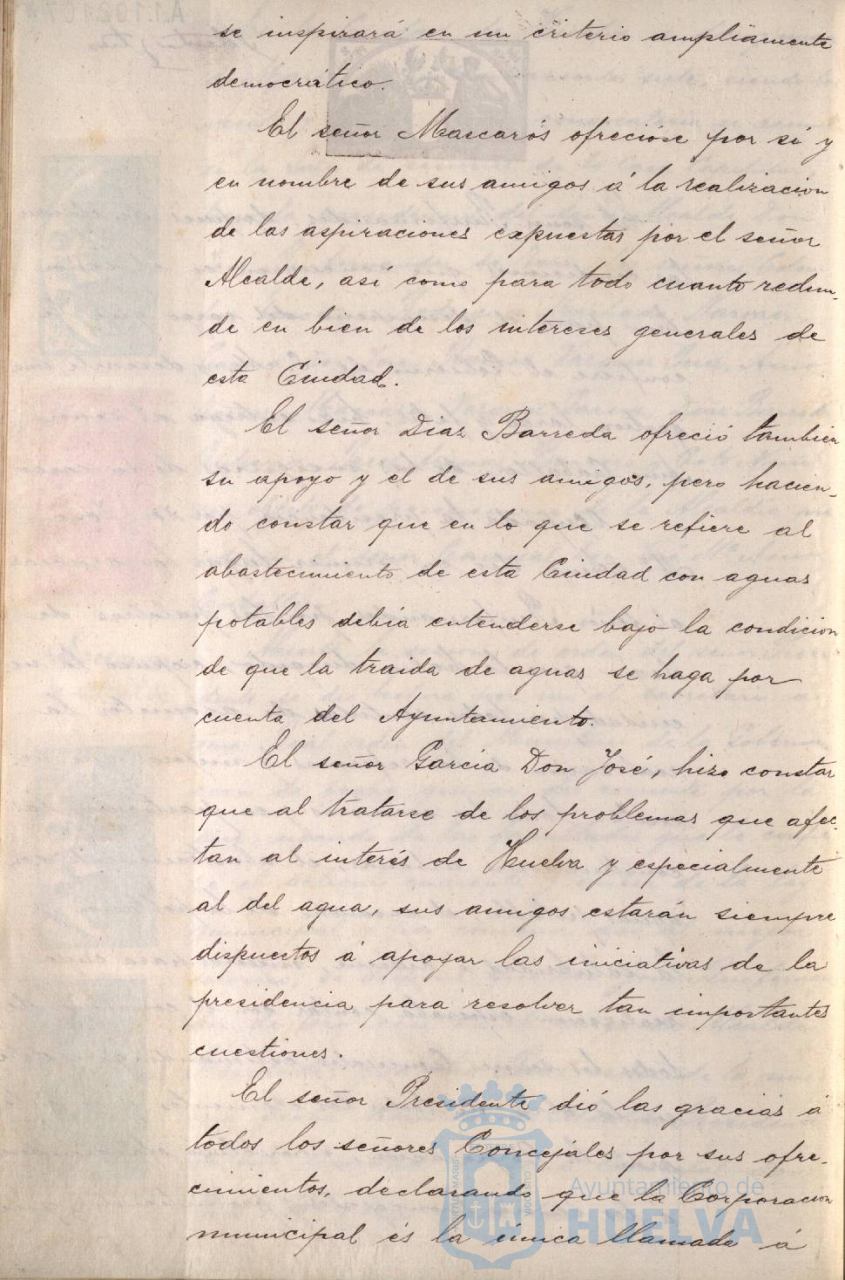 se inspirará en un criterio ampliamente
democrático.
El señor Mascarós ofrecióse por sí y
en nombre de sus amigos á la realizacion
de las aspiraciones expuestas por el señor
Alcalde, así como para todo cuanto redun-
de en bien de los intereses generales de
esta Ciudad.
El señor Diaz Barreda ofreció tambien
su apoyo y el de sus amigos, pero hacien-
do constar que en lo que se refiere al
abastecimiento de esta Ciudad con aguas
potables debia entenderse bajo la condicion
de que la traida de aguas se haga por
cuenta del Ayuntamiento.
El señor Garcia Don José, hizo constar
que al tratarse de los problemas que afec-
tan al interés de Huelva y especialmente
al del agua, sus amigos estarán siempre
dispuestos á apoyar las iniciativas de la
presidencia para resolver tan importantes
cuestiones.
El señor Presidente dió las gracias á
todos los señores Concejales por sus ofre-
cimientos, declarando que la Corporacion
municipal és la única llamada á
Ayuntamiento de
HUELVA